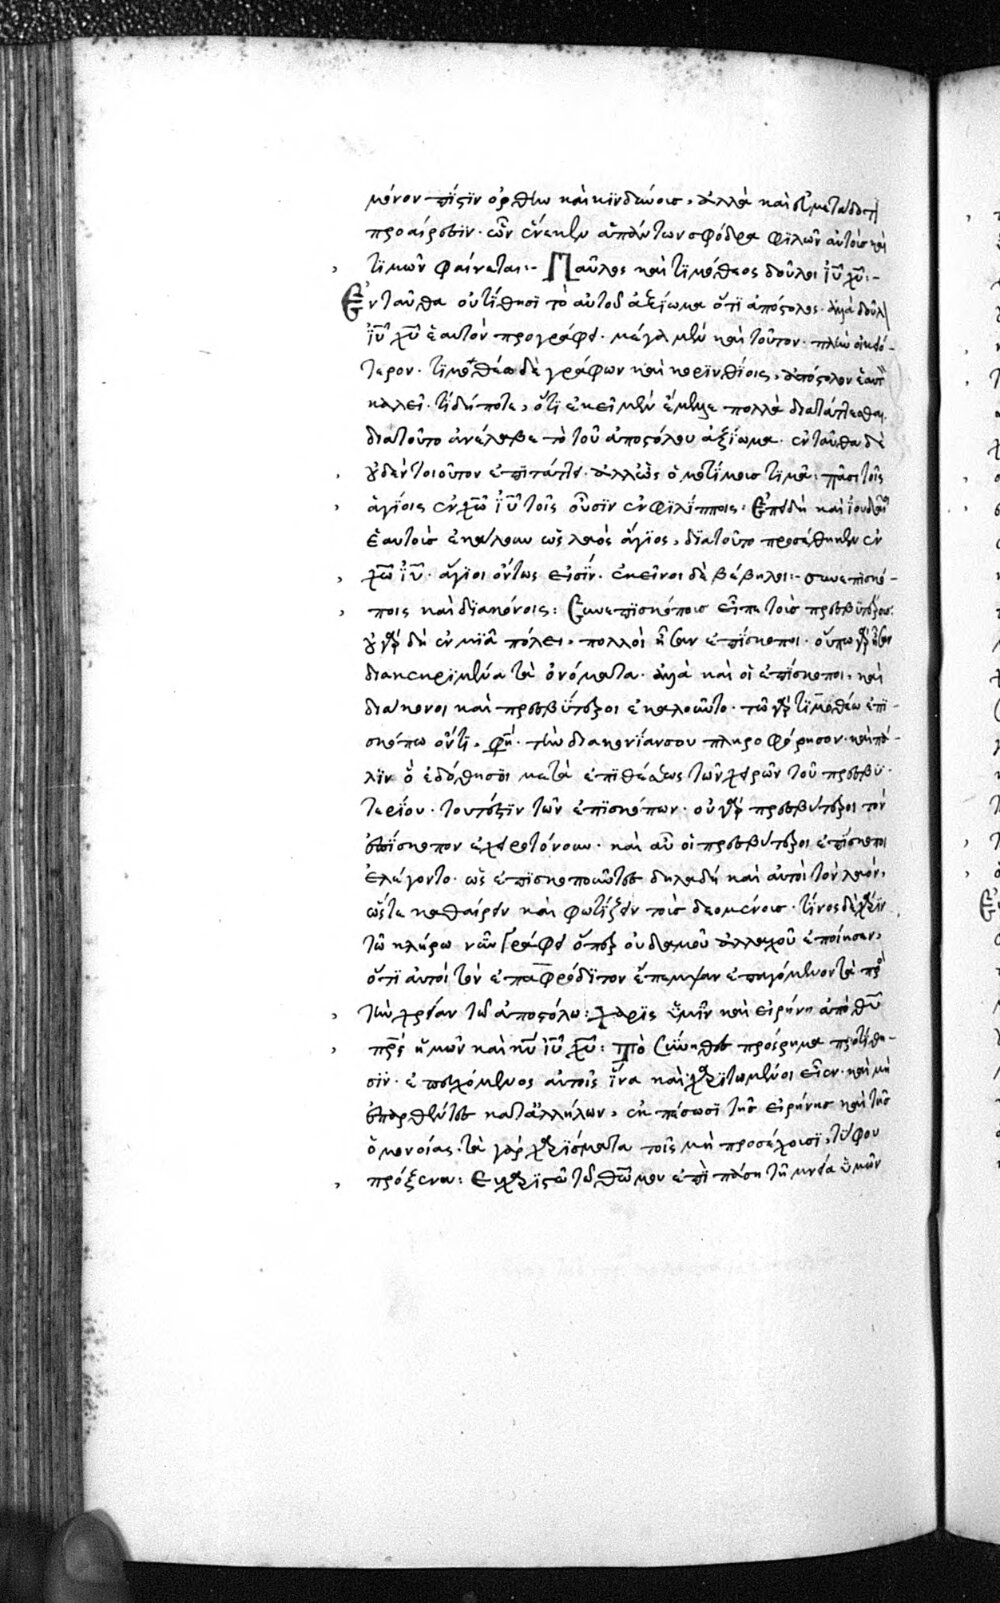 μόνον πίστιν ὀρθὴν καὶ κινδύνοις, ἀλλὰ καὶ εὐμετάδοτον
προαίρεσιν. ὧν ἕνεκεν ἁπάντων σφόδρα φιλῶν αὐτοὺς καὶ
τιμῶν φαίνεται:- Παῦλος καὶ τιμόθεος δοῦλοι ἰυ χυ:-
Ἐνταῦθα οὐ τίθησι τὸ αὐτοῦ ἀξίωμα ὅτι ἀπόστολος. ἀλλὰ δοῦλον
ἰυ χυ ἑαυτὸν προγράφει. μέγα μὲν καὶ τοῦτον. πλὴν ἐνδό-
τερον. τιμοθέω δὲ γράφων καὶ κορινθίοις, ἀπόστολον ἑαυτὸν
καλεῖ. τί δήποτε, ὅτι ἐκεῖ μὲν ἔμελλε πολλὰ διατάττεσθαι.
διατοῦτο ἀνέλαβε τὸ τοῦ ἀποστόλου ἀξίωμα. ἐνταῦθα δὲ
οὐδὲν τοιοῦτον ἐπιτάττει. ἀλλ' ὡς ὁμοτίμοις τιμᾶ: πᾶσι τοῖς
ἁγίοις ἐν χω ἰυ τοῖς οὖσιν ἐν φιλίπποις: Ἐπειδὴ καὶ ἰουδαῖοι
ἑαυτοὺς ἐκάλουν ὡς λαὸς ἅγιος, διατοῦτο προσέθηκεν ἐν
χω ἰυ. ἅγιοι ὄντως εἰσίν. ἐκεῖνοι δὲ βέβηλοι:- συνεπισκό-
ποις καὶ διακόνοις: Συνεπισκόποις εἶπε τοὺς πρεσβυτέρους.
οὐ γὰρ δὴ ἐν μιᾶ πόλει, πολλοὶ ἦσαν ἐπίσκοποι. οὔπω γὰρ ἦσαν
διακεκριμένα τὰ ὀνόματα. ἀλλὰ καὶ οἱ ἐπίσκοποι, καὶ
διάκονοι καὶ πρεσβύτεροι ἐκαλοῦντο. τῶ γὰρ τιμοθέω ἐπι-
σκόπω ὄντι, φη. τὴν διακονίαν σου πληροφόρησον. καὶ πά-
λιν ὃ ἐδόθη σοι μετὰ ἐπιθέσεως τῶν χειρῶν τοῦ πρεσβυ-
τερίου. τουτέστιν τῶν ἐπισκόπων. οὐ γὰρ πρεσβύτεροι τὸν
ἐπίσκοπον ἐχειροτόνουν. καὶ αὖ οἱ πρεσβύτεροι ἐπίσκοποι
ἐλέγοντο. ὡς ἐπισκοποῦντες δηλαδὴ καὶ αὐτοὶ τὸν λαόν,
ὥστε καθαίρειν καὶ φωτίζειν τοὺς δεομένους. τίνος δὲ χάριν
τῶ κλήρω νῦν γράφει ὅπερ οὐδαμοῦ ἀλλαχοῦ ἐποίησεν,
ὅτι αὐτοὶ τὸν ἐπαφρόδιτον ἔπεμψαν ἐπαγόμενον τὰ πρὸς
τὴν χρείαν τῶ ἀποστόλω: χάρις ὑμῖν καὶ εἰρήνη ἀπὸ θυ
πρς ἡμῶν καὶ κυ ἰυ χυ: Τὸ σύνηθες πρόσρημα προτίθη-
σιν. ἐπευχόμενος αὐτοῖς ἵνα καὶ χαριτωμένοι εἶεν. καὶ μὴ
ἐπαρθέντες κατἀλλήλων, ἐκπέσωσι τῆς εἰρήνης καὶ τῆς
ὁμονοίας. τὰ γὰρ χαρίσματα τοῖς μὴ προσέχουσι, τύφου
πρόξενα: Εὐχαριστῶ τῶ θω μου ἐπὶ πάση τῆ μνεία ὑμῶν